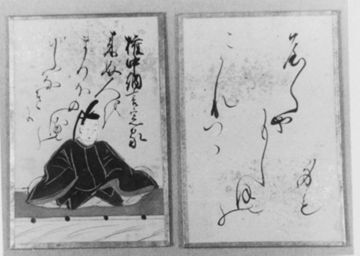 権中納言定家
来ぬ人を
まつほの浦の
夕なきに
やくやもしほの
身も
こかれつゝ